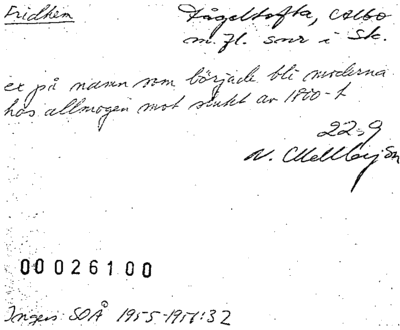 Fridhem
Fågeltofta, Albo
m.fl. snr i Sk.
ex på namn som började bli moderna
hos allmogen mot slutet av 1800-t
22.9
N.
00026100
Ingers SOÅ 1955-1956:32